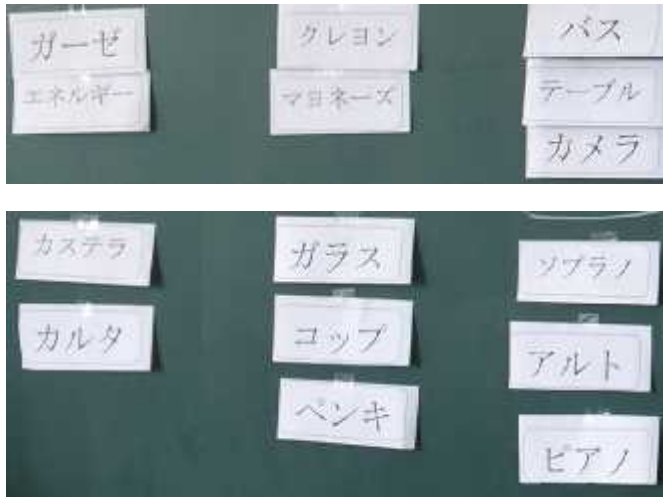 ガーゼ
エネルギー
クレヨン
マヨネーズ
バス
テーブル
カメラ
カステラ
カルタ
ガラス
コップ
ペンキ
ソプラノ
アルト
ピアノ